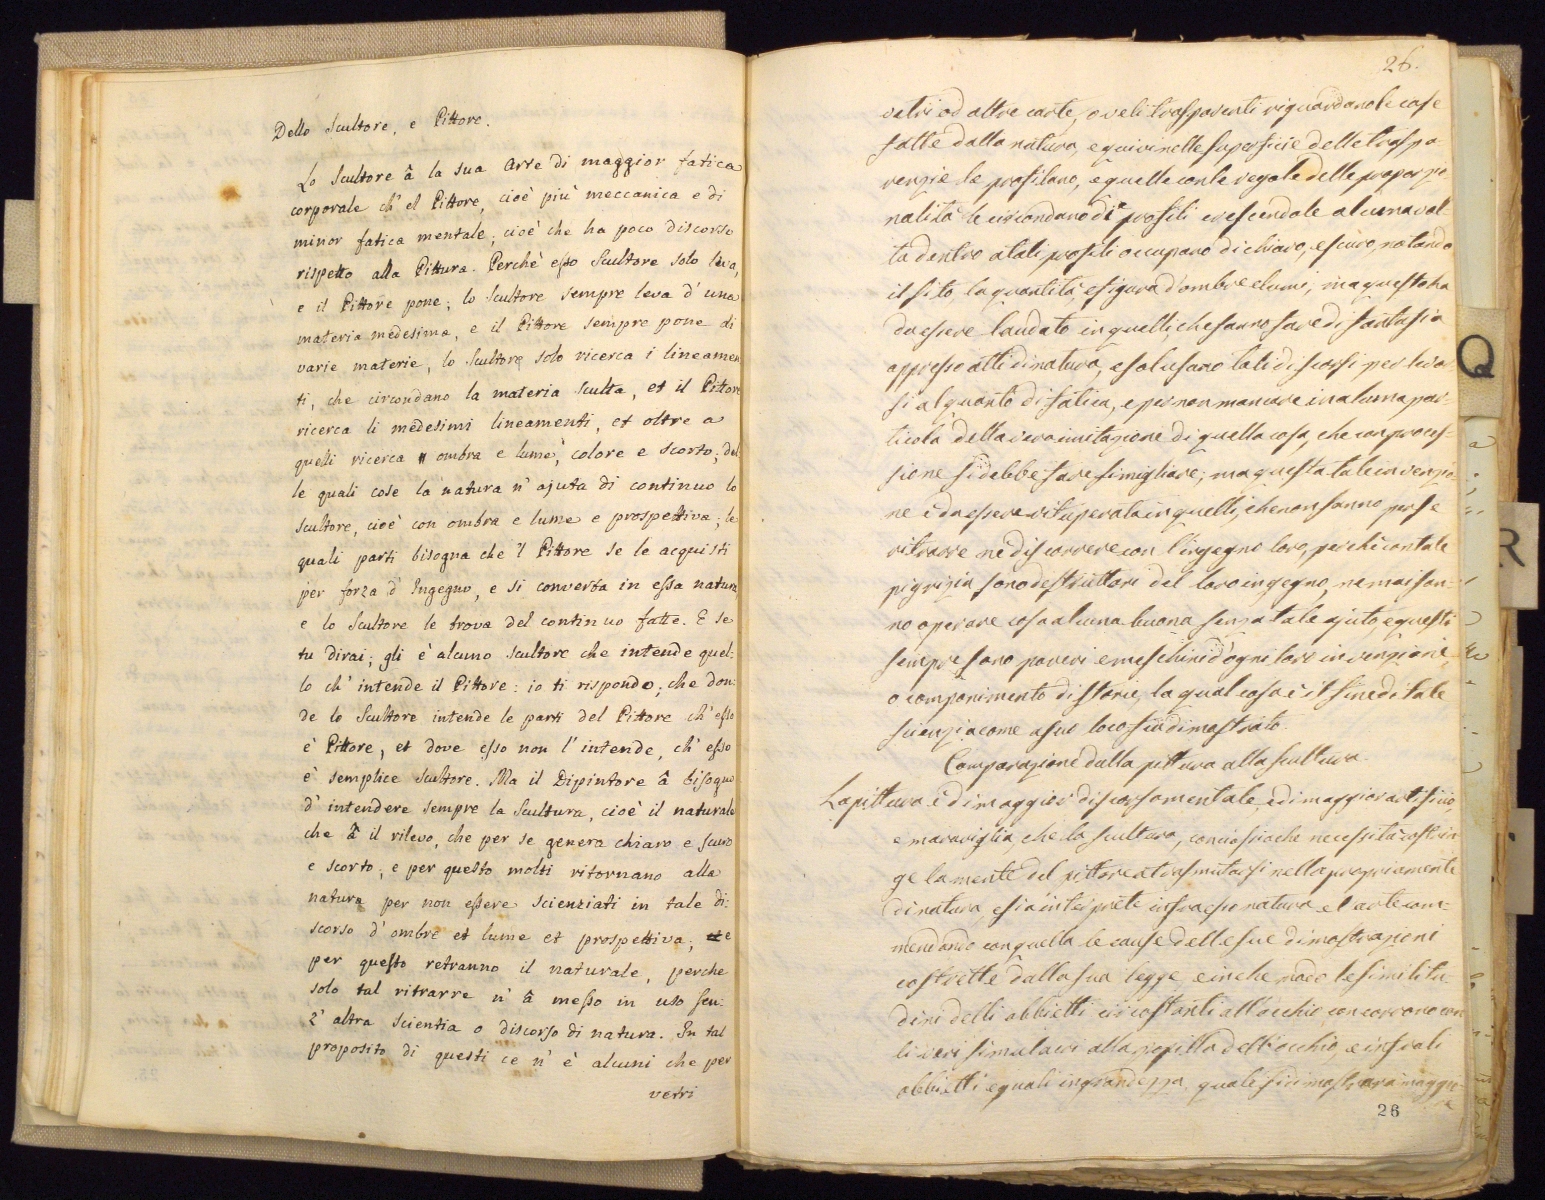 Dello Scultore, e Pittore.
Lo Scultore â la sua Arte di maggior fatica
corporale ch' el Pittore, cioè più meccanica e di
minor fatica mentale; cioè che ha poco discorso
rispetto alla Pittura. Perchè esso Scultore solo leva,
e il Pittore pone; lo Scultore sempre leva d' una
materia medesima, e il Pittore sempre pone di
varie materie, lo Scultore solo ricerca i lineamen
ti, che circondano la materia sculta, et il Pittore
ricerca li medesimi lineamenti, et oltre a
quelli ricerca ombra e lume, colore e scorto; del
le quali cose la natura n' ajuta di continuo lo
Scultore, cioè con ombra e lume e prospettiva; le
quali parti bisogna che 'l Pittore se le acquisti
per forza d' Ingegno, e si converta in essa natura,
e lo Scultore le trova del continuo fatte. E se
tu dirai; gli è alcuno Scultore che intende quel:
lo ch' intende il Pittore: io ti rispondo; che don:
de lo Scultore intende le parti del Pittore ch' esso
è Pittore, et dove esso non l' intende, ch' esso
è semplice Scultore. Ma il Dipintore â bisogno
d' intendere sempre la Scultura, cioè il naturale
che â il rilevo, che per se genera chiaro e scuro
e scorto; e per questo molti ritornano alla
natura per non essere scienziati in tale di:
scorso d' ombre et lume et prospettiva; e
per questo retranno il naturale, perche
solo tal ritrarre n' â messo in uso sen:
z' altra scientia o discorso di natura. In tal
proposito di questi ce n' è alcuni che per
vetri
26.
vetri od altre carte, o veli trasparenti riguardano le cose
fatte dalla natura, e quivi nelle superficie delle traspa-
renzie le profilano, e quelle con le regole delle proporzio
nalità le circondano di profili crescendole alcuna vol-
ta dentro a tali profili occupano di chiaro, e scuro, notando
il sito la quantità, e figura d'ombre e lumi; ma questo ha
da essere laudato in quelli, che sanno fare di fantasia
appresso atti di natura, e sol usano tali discorsi per levar
si alquanto di fatica, e per non mancare in alcuna par-
ticola della vera imitazione di quella cosa, che con preces-
sione si debbe fare simigliare; ma questa tale invenzio
ne è da essere vituperata in quelli, che non sanno per se
ritrarre ne discorrere con l'ingegno loro, perchi con tale
pigrizia sono destruttori del loro ingegno, ne mai san-
no operare cosa alcuna buona senza tale ajuto, e questi
sempre sono poveri e meschini d'ogni loro invenzione
o componimento di storie, la qual cosa è il fine di tale
scienzia come a suo loco fia dimostrato.
Comparazione dalla pittura alla scultura.
La pittura è di maggior discorso mentale, e di maggior artificio,
e maraviglia, che la scultura, conciosiache necessità costrin
ge la mente del pittore a trasmutarsi nella propria mente
di natura, e sia interprete infra essa natura e l'arte com-
mendando con quella le cause delle sue dimostrazioni
costrette dalla sua legge, e in che modo le similitu
dini delli obbietti circostanti all'occhio, concorrano con
li veri simulacri alla popilla dell'occhio, e infra li
obbietti eguali in grandezza, quale si dimostrarà maggio
re
26
Q
R